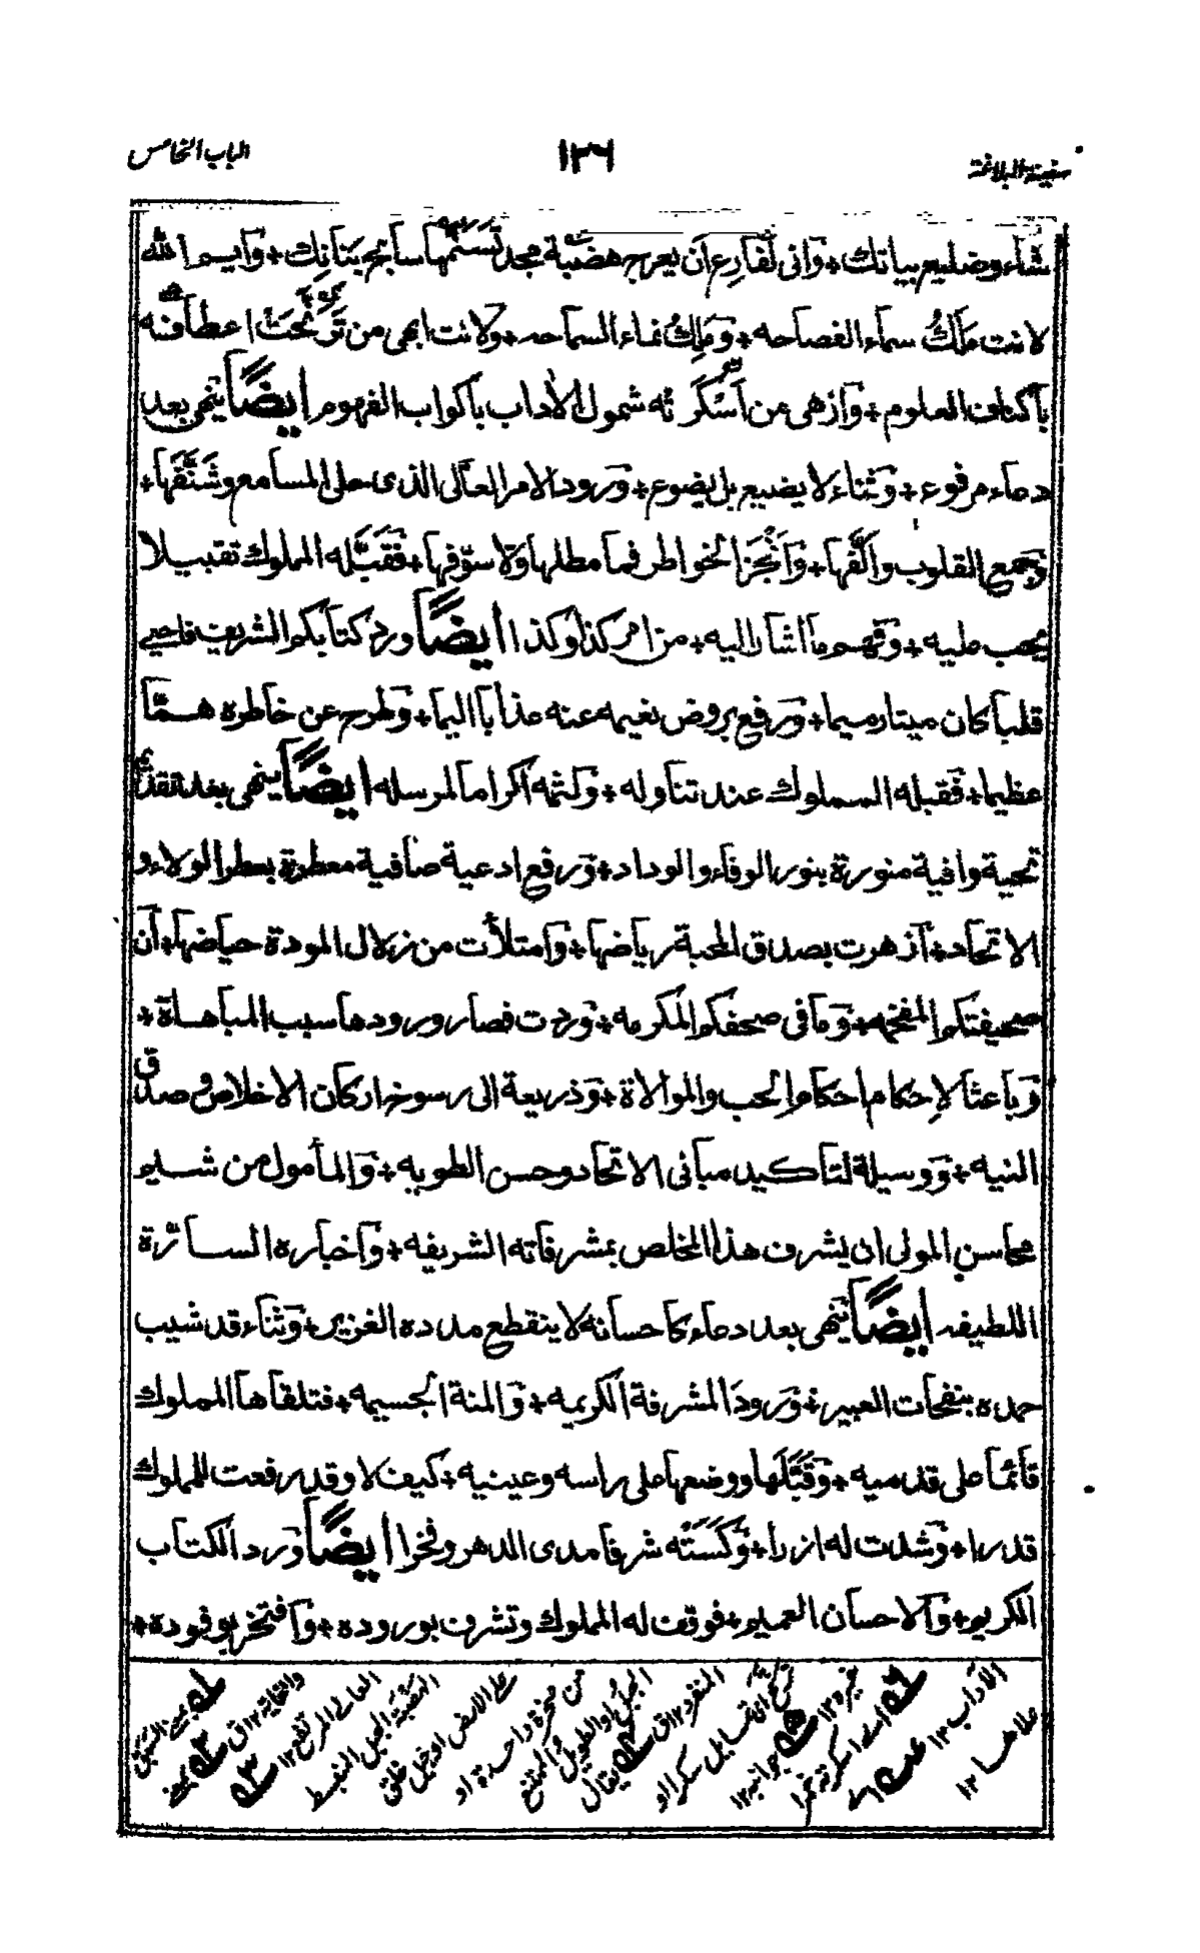 سفينة البلاغة
١٣٦
الباب الخامس
شاء وضليع بيانك + وَانى لفارع ان يعرج هضبة مجد تَسَنَّمها سابح بَنَانِك + وَايم الله
لانت مَلَكُ سماء الفصاحه + وَمَلِكُ نماء السماحه + ولانت ابهى من تَرَنَّحَتْ اعطافه
بأكناف العلوم + وَازهى من اَسْكَرَته شمول الأداب بأكواب الفهوم ايضًا ينهى بعد
دعاء مرفوع + وَثناء لا يضيع بل يضوع + وَرود الامر العالى الذى حلى المسامع وشَنَّفَها +
وَجمع القلوب والَّفها + وَاَنْجَزَ الخواطر فما مطلها ولا سوّفها + فَقَبَّله المملوك تقبيلا
يجب عليه + وَفهم ما اشار اليه + من امر كذا وكذا ايضًا ورد كتابكم الشريف فاحيى
قلبا كان ميتا رميما + وَرفع بروض نعيمه عنه عذابا اليما + وَطرح عن خاطره همّا
عظيما + فَقبله المملوك عند تناوله + وَلثمه اكراما لمرسله ايضًا ينهى بعد تقديم
تحية وافية منورة بنور الوفاء والوداد + وَرفع ادعية صافية معطرة بعطر الولاء و
الاتحاد + اَزهرت بصدق المحبة رياضها + وَامتلأت من زلال المودة حياضها + اَن
صحيفتكم المفخمه + وَما فى صحفكم المكرمه + وَردت فصار ورودها سبب المباهاة +
وَباعثا لإحكام أحكام الحب والموالاة + وَذريعة الى رسوخ اركان الاخلاص وصدق
النيه + وَوسيلة لتاكيد مبانى الاتحاد وحسن الطويه + وَالمأمول من شيم
محاسن المولى ان يشرف هذا المخلص بمشرفاته الشريفه + وَاخباره السائرة
اللطيفه ايضًا يَنهى بعد دعاء كاحسانه لا ينقطع مدده الغزير + وَثناء قد شيب
حمده بنفحات العبير + وَرودَ المشرفة الكريمه + وَالمنة الجسيمه + فتلقاها المملوك
قائما على قدميه + وَقَبَّلَها ووضعها على راسه وعينيه + كَيف لا وقد رفعت للمملوك
قدرا + وَشدت له ازرا + وَكَسَتْه شرفا مدى الدهر وفخرا ايضًا وَرد الكتاب
الكريم + وَالاحسان العميم + فوقف له المملوك وتشرف بوروده + وَافتخر بوفوده +
له يعنے السَّبَق
والغاية ١٢ق
العالے المرتفع ١٢
الهَضْبَة الجبل المنبسط
علے الارض او جبل خلق
من صخرة واحدة او
الجبل او الطويل الممتنع
المنفرد ١٢ق يقال
ترنح اى تمايل سكرا او
غيره ١٢ جوانبه ١٢
اے اسكرته خمر
الآداب ١٢